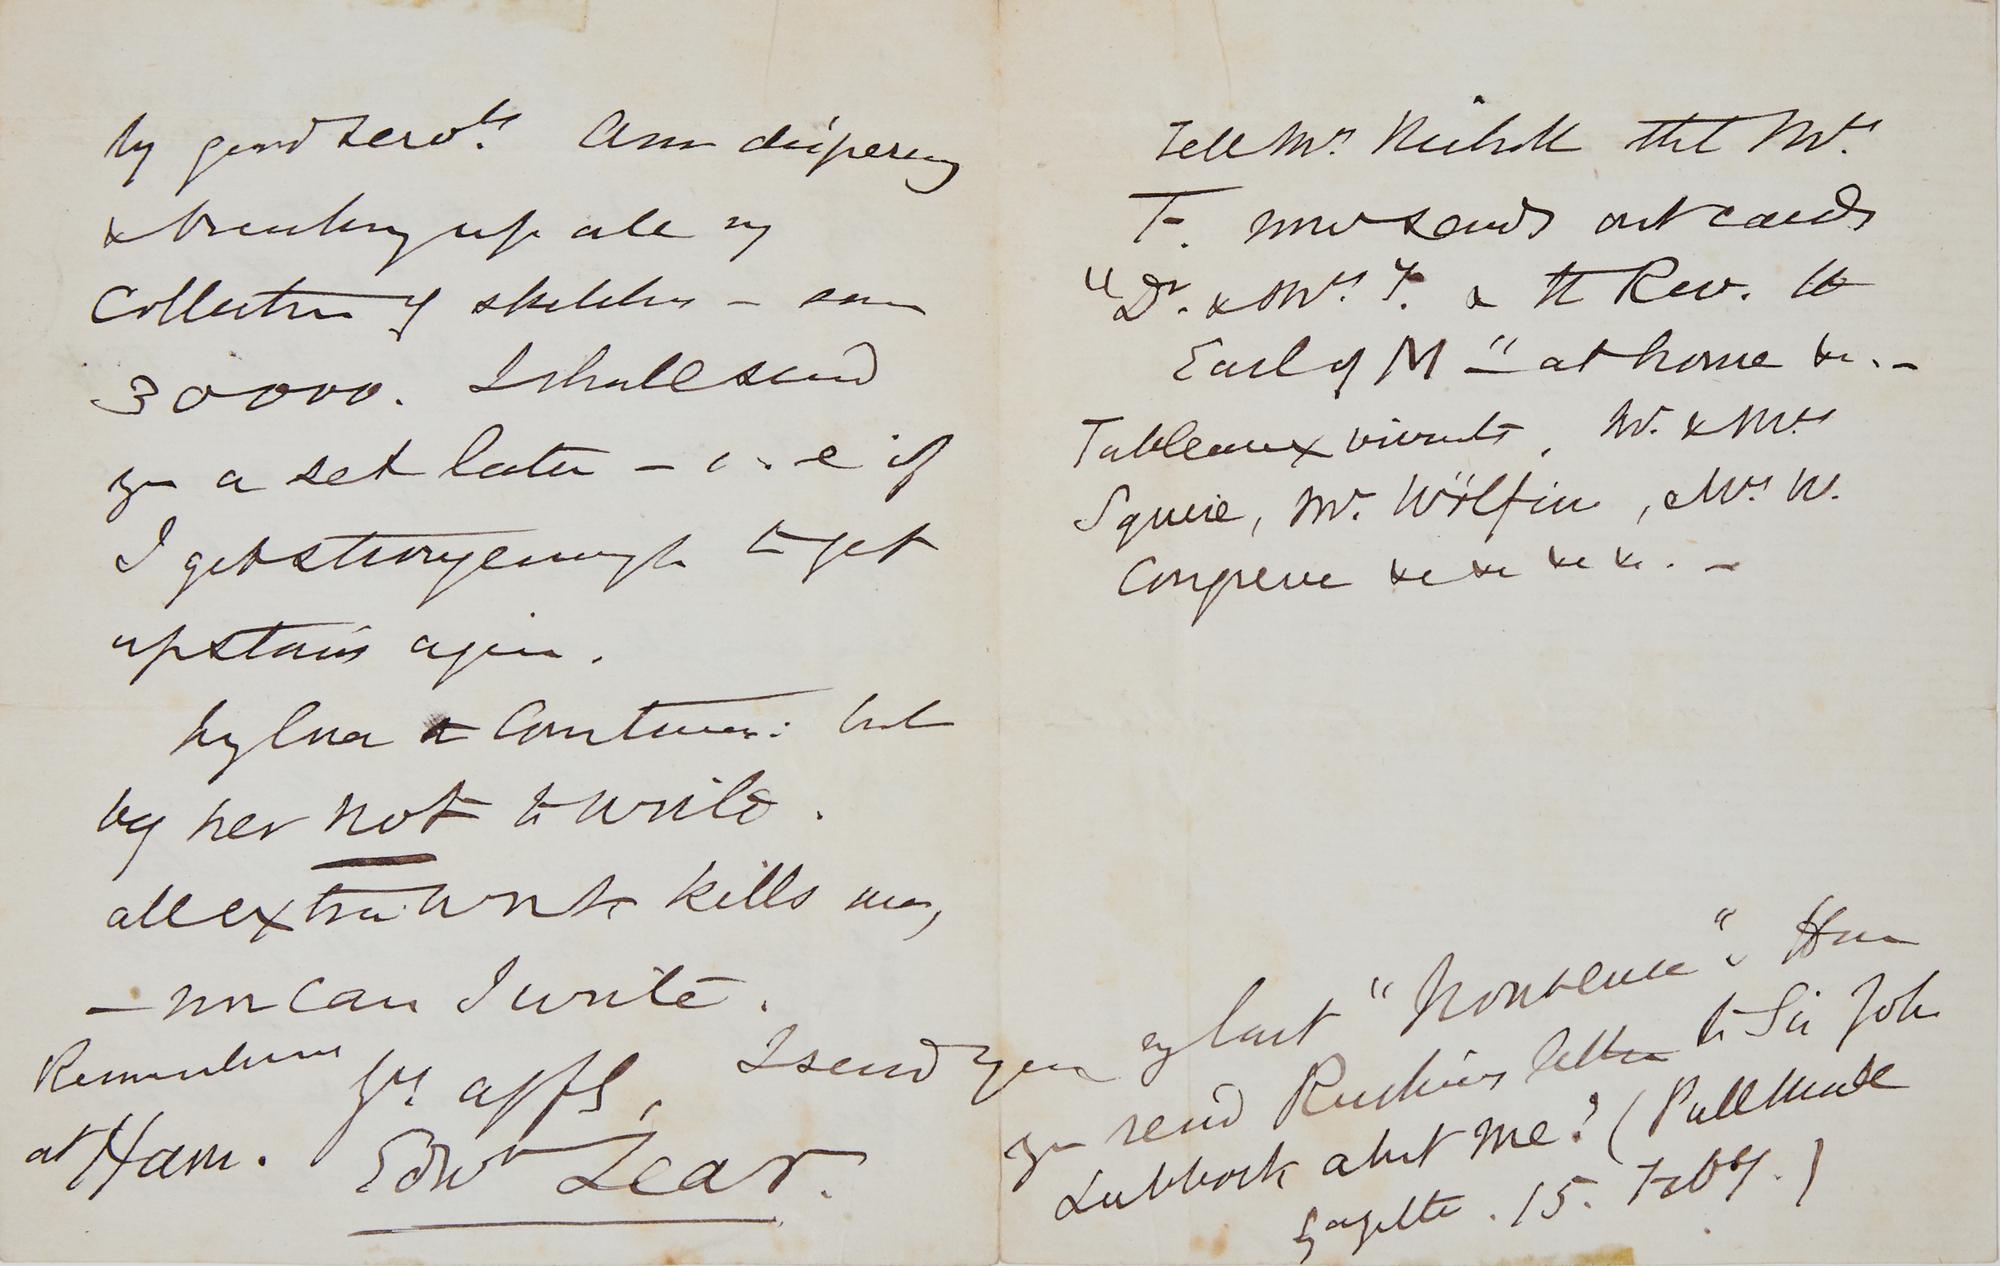 by good servts. Am dispersing
& breaking up all my
Collection of sketches — some
30000. I shall send
you a set later — i.e if
I get strong enough to get
upstairs again.
My love to Contessa: but
beg her not to write.
all extra work kills me,
— nor can I write.
Remembrances Yrs. affly,
at Ham. Edwd Lear.
Tell Mr. Nicholl that Mrs.
T. now sends out cards
"Dr. & Mrs. T. & the Rev. the
Earl of M" — at home &c. —
Tableaux vivants, Mr. & Mrs
Squire, Mr. Wölfin, Mrs W.
Congreve &c &c &c &c. —
I send you my last "Nonsense". Have
you read Ruskin's letter to Sir John
Lubbock about me? (Pall Mall
Gazette. 15. Feby.)